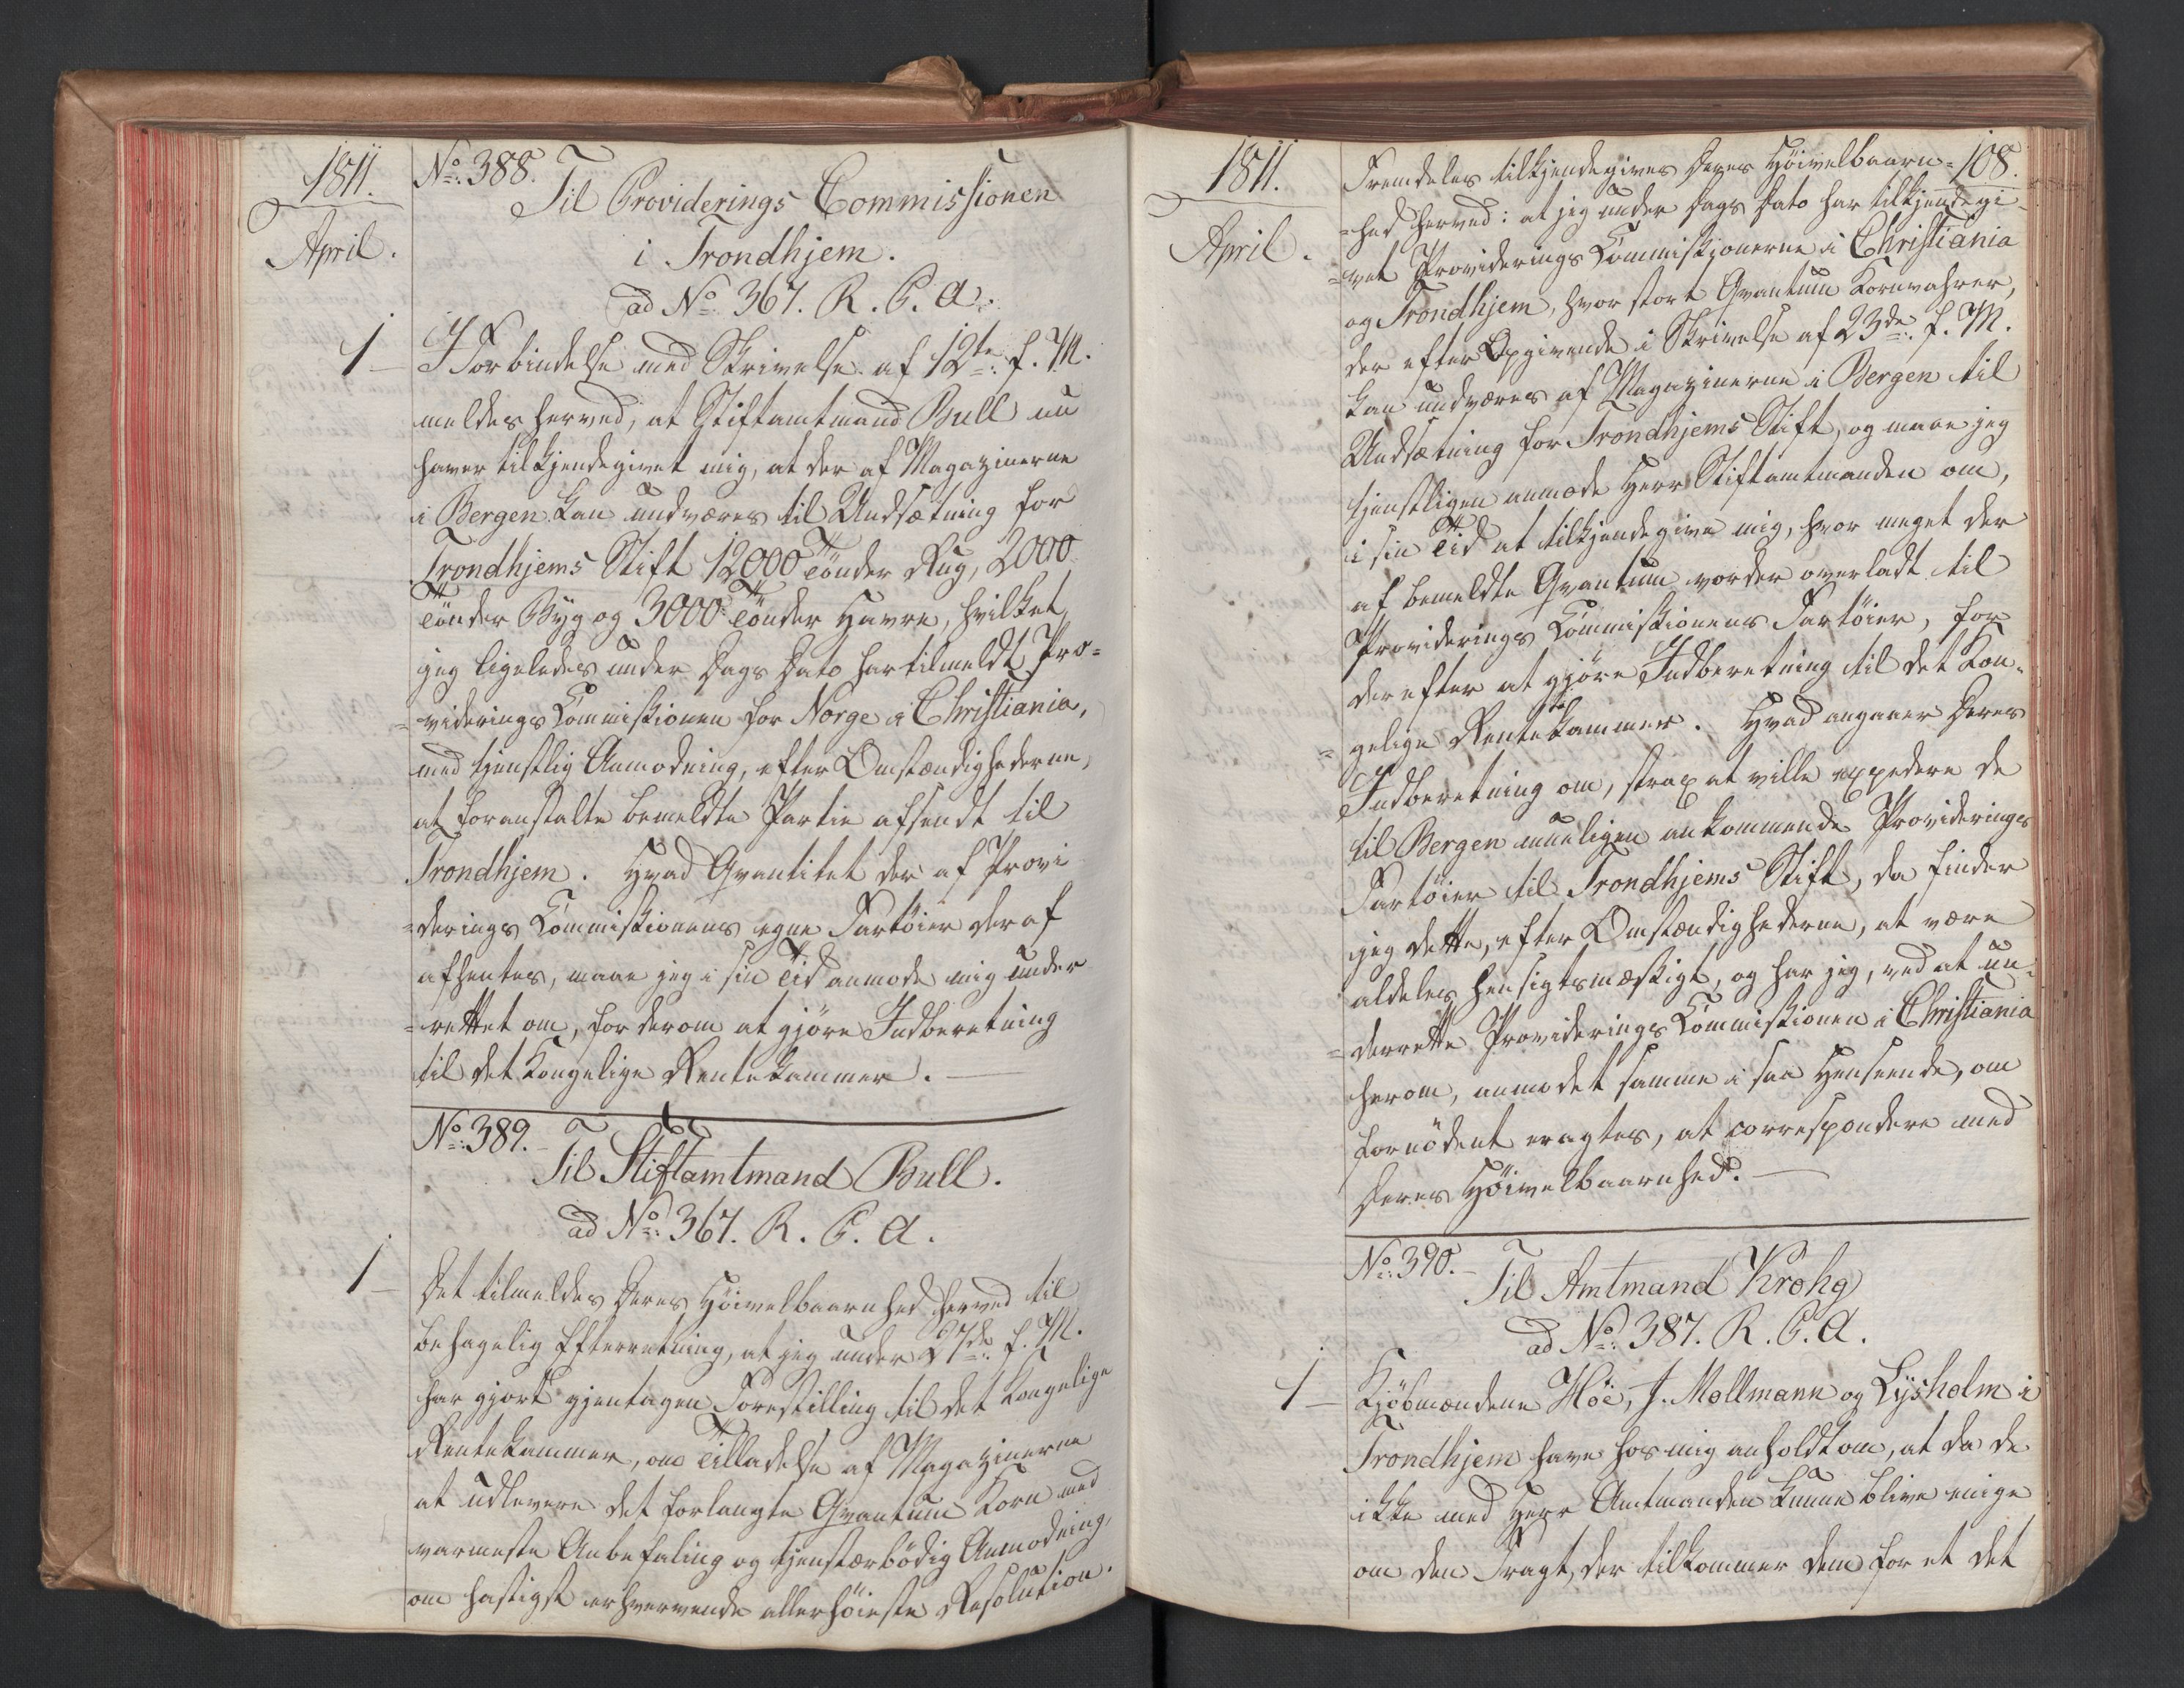 1811.
April.
No: 388.
Til Providerings Commissionen
i Trondhjem.
ad No: 367. R. C. A.
1 -
I Forbindelse med Skrivelse af 12te f. M.
meldes herved, at Stiftamtmand Bull nu
haver tilkjendegivet mig, at der af Magazinerne
i Bergen kan undværes til Undsætning for
Trondhjems Stift 12000 Tönder Rug, 2000
Tönder Byg og 3000 Tönder Havre, hvilket
jeg ligeledes under Dags Dato har tilmeldt Pro=
=viderings Commissionen for Norge i Christiania,
med tjenstlig Anmodning, efter Omstændighederne,
at foranstalte bemeldte Partie afsendt til
Trondhjem. Hvad Qvantitet der af Provi
=derings Commissionens egne Fartöier deraf
afhentes, maae jeg i sin Tid anmode mig under
=rettet om, for derom at gjöre Indberetning
til det Kongelige Rentekammer. -
No: 389. -
Til Stiftamtmand Bull.
ad No: 367. R. C. A.
1 -
Det tilmeldes Deres Höivelbaarnhed herved til
behagelig Efterretning, at jeg under 27de f. M.
har gjort gjentagen Forestilling til det Kongelige
Rentekammer, om Tilladelse af Magazinerne
at udlevere det forlangte Qvantum Korn med
varmeste Anbefaling og tjenstærbödig Anmodning,
om hastigst erhvervende allerhöieste Resolution.
1811.
April.
108.
Fremdeles tilkjendegives Deres Höivelbaarn=
=hed herved: at jeg under Dags Dato har tilkjendegi
=vet Providerings Commissionerne i Christiania
og Trondhjem, hvor stort Qvantum Kornvahrer,
der efter Opgivende i Skrivelse af 23de f. M.
kan undværes af Magazinerne i Bergen til
Undsætning for Trondhjems Stift, og maae jeg
tjenstligen anmode Herr Stiftamtmanden om,
i sin Tid at tilkjendegive mig, hvor meget der
af bemeldte Qvantum vorder overladt til
Providerings Commissionens Fartöier, for
derefter at gjöre Indberetning til det Kon=
=gelige Rentekammer. Hvad angaaer Deres
Indberetning om, strax at ville expedere de
til Bergen mueligen ankommende Providerings
Fartöier til Trondhjems Stift, da finder
jeg dette, efter Omstændighederne, at være
aldeles hensigtsmæssigt, og har jeg, ved at un=
=derrette Providerings Commissionen i Christiania
herom, anmodet samme i saa Henseende, om
fornödent eragtes, at correspondere med
Deres Höivelbaarnhed. -
No: 390. -
Til Amtmand Krohg
ad No: 387. R. C. A.
1 -
Kjöbmændene Höe, J. Mollmann og Lysholm i
Trondhjem have hos mig anholdt om, at da de
ikke med Herr Amtmanden kunne blive enige
om den Fragt, der tilkommer dem for et det